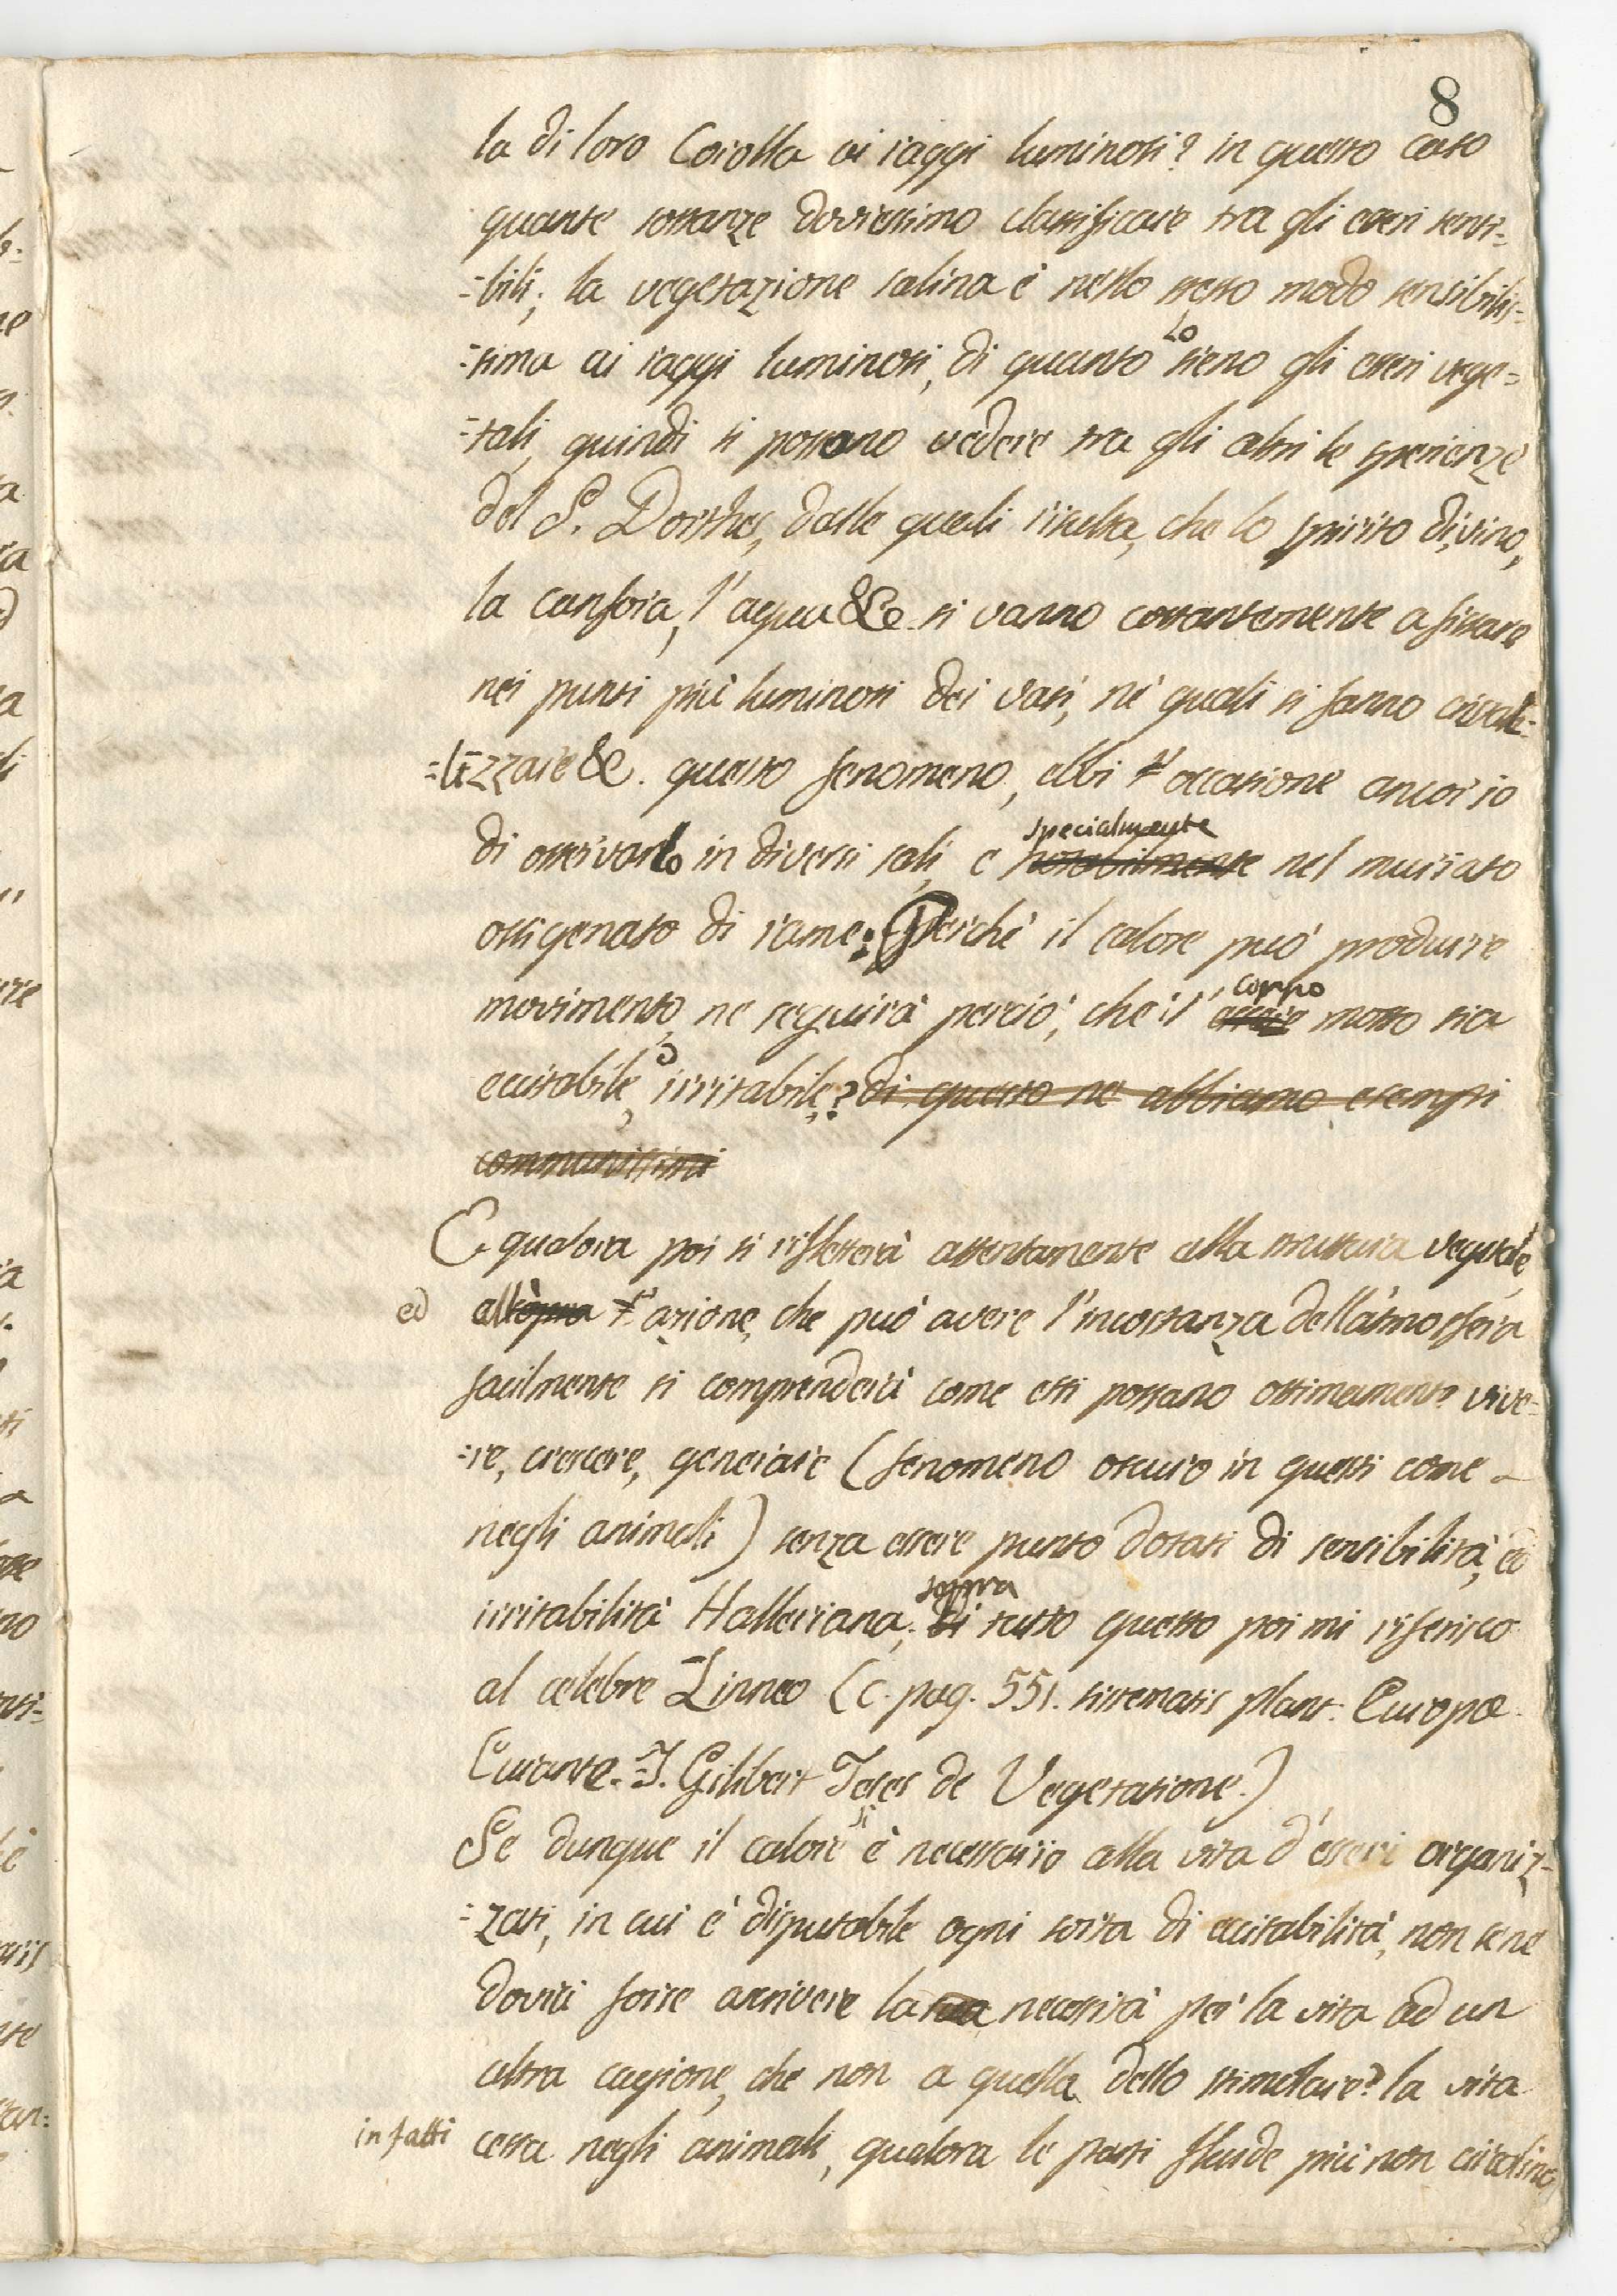 8
la di loro Corolla ai raggi luminosi? in questo caso
quante sostanze dovressimo classificare tra gli esseri sensi=
=bili; la vegetazione salina è nello stesso modo sensibilis=
=sima ai raggi luminosi, di quanto lo sieno gli esseri vege=
=tali, quindi si possono vedere tra gli altri le sperienze
del S. Dorthes, dalle quali risulta, che lo spirito di vino,
la canfora, l'acqua &c. si vanno costantemente a fissare
nei punti più luminosi dei vasi, ne' quali si fanno cristal=
=lizzare &c. questo fenomeno, ebbi l'occasione ancor io
specialmente
di osservarlo in diversi sali, e notabilmente nel muriato
ossigenato di rame: Perchè il calore può produrre
corpo
movimento, ne seguirà perciò, che il essere mosso sia
eccitabile, o irritabile? di questo ne abbiamo esempi
communissimi
E qualora poi si rifletterà attentamente alla struttura vegetale
ed all'azione, che può avere l'incostanza dell'atmosfera
facilmente si comprenderà come essi possano ottimamente vive=
=re, crescere, generare (fenomeno oscuro in questi come
negli animali) senza essere punto dotati di sensibilità, ed
sopra
irritabilità Halleriana; di tutto questo poi mi riferisco
al celebre Linneo (c. pag. 551. sistematis plant. Europæ.
Curante. J. Gilibert Teses de Vegetatione.)
Se dunque il calore sì è necessario alla vita d'esseri organiz=
=zati, in cui è disputabile ogni sorta di eccitabilità, non se ne
dovrà forse ascrivere la sua necessità per la vita ad un
altra cagione, che non a quella dello stimolare? la vita
in fatti cessa negli animali, qualora le parti fluide più non circolino,